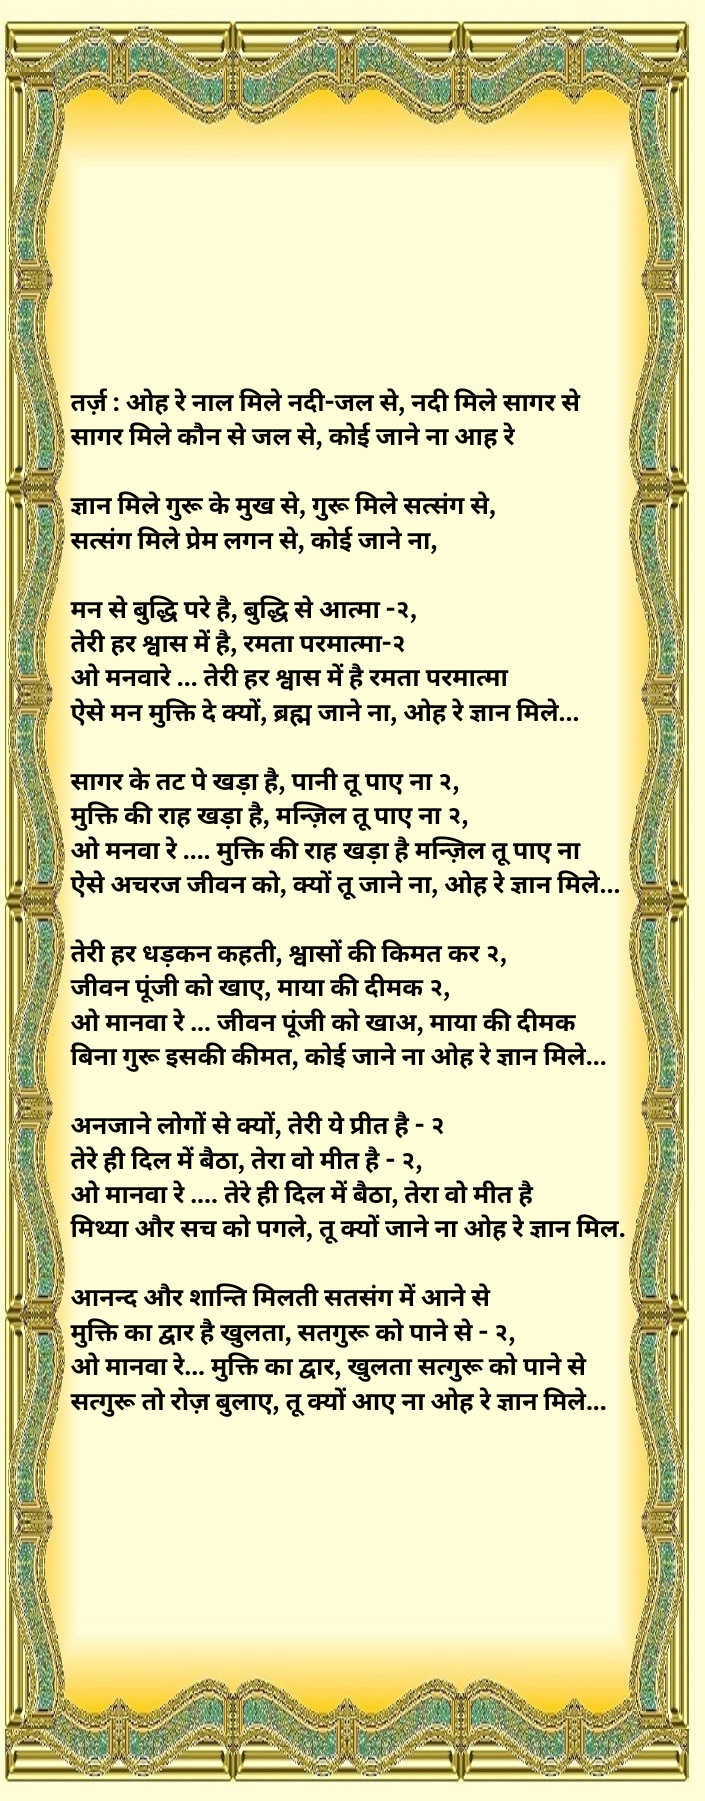 तर्ज़ : ओह रे नाल मिले नदी-जल से, नदी मिले सागर से
सागर मिले कौन से जल से, कोई जाने ना आह रे
ज्ञान मिले गुरू के मुख से, गुरू मिले सत्संग से,
सत्संग मिले प्रेम लगन से, कोई जाने ना,
मन से बुद्धि परे है, बुद्धि से आत्मा -२,
तेरी हर श्वास में है, रमता परमात्मा-२
ओ मनवारे ... तेरी हर श्वास में है रमता परमात्मा
ऐसे मन मुक्ति दे क्यों, ब्रह्म जाने ना, ओह रे ज्ञान मिले...
सागर के तट पे खड़ा है, पानी तू पाए ना २,
मुक्ति की राह खड़ा है, मन्ज़िल तू पाए ना २,
ओ मनवा रे .... मुक्ति की राह खड़ा है मन्ज़िल तू पाए ना
ऐसे अचरज जीवन को, क्यों तू जाने ना, ओह रे ज्ञान मिले...
तेरी हर धड़कन कहती, श्वासों की किमत कर २,
जीवन पूंजी को खाए, माया की दीमक २,
ओ मानवा रे ... जीवन पूंजी को खाअ, माया की दीमक
बिना गुरू इसकी कीमत, कोई जाने ना ओह रे ज्ञान मिले...
अनजाने लोगों से क्यों, तेरी ये प्रीत है - २
तेरे ही दिल में बैठा, तेरा वो मीत है - २,
ओ मानवा रे .... तेरे ही दिल में बैठा, तेरा वो मीत है
मिथ्या और सच को पगले, तू क्यों जाने ना ओह रे ज्ञान मिल.
आनन्द और शान्ति मिलती सतसंग में आने से
मुक्ति का द्वार है खुलता, सतगुरू को पाने से - २,
ओ मानवा रे... मुक्ति का द्वार, खुलता सत्गुरू को पाने से
सत्गुरू तो रोज़ बुलाए, तू क्यों आए ना ओह रे ज्ञान मिले...